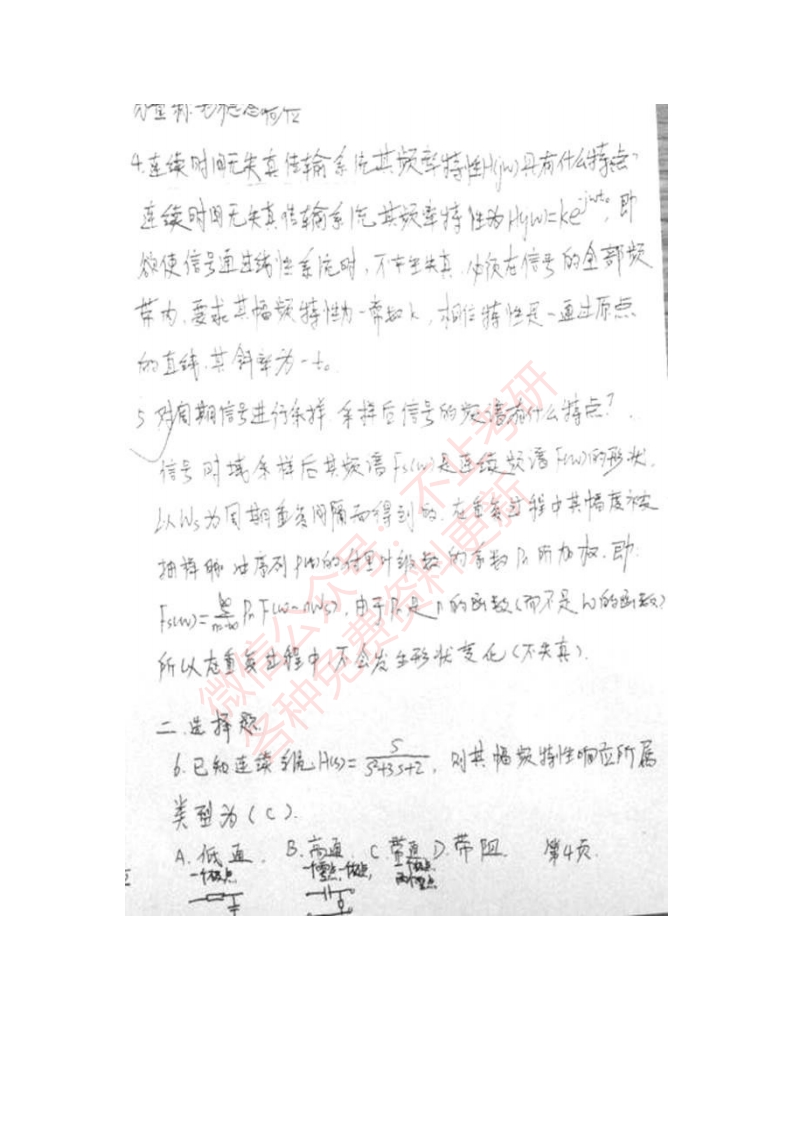 4.连续时间无失真传输系统其频率特性H(jw)具有什么特点?
连续时间无失真传输系统其频率特性为H(jw)=ke^{-jwt₀}, 即
欲使信号通过线性系统时, 不产生失真, 必须在信号的全部频
带内, 要求其幅频特性为一常数k, 相位特性是一通过原点
的直线, 其斜率为-t₀.
5 对周期信号进行采样 采样后信号的频谱有什么特点?
信号时域采样后其频谱Fs(w)是连续频谱F(w)的形状,
以Ws为周期重复间隔而得到的. 在重复过程中其幅度被
抽样脉冲序列P(t)的付里叶级数的系数Pn所加权. 即:
Fs(w)=∑_{n=-∞}^{∞} Pn F(w-nWs), 由于Pn是n的函数(而不是w的函数)
所以在重复过程中不会发生形状变化(不失真).
二. 选择题
6.已知连续系统H(s)= s/(s²+3s+2), 则其幅频特性响应所属
类型为(C).
A.低通. B.高通. C.带通 D.带阻. 第4页.
一个极点 一个零点一个极点,
微信公众号:不止考研
各种免费资料更新